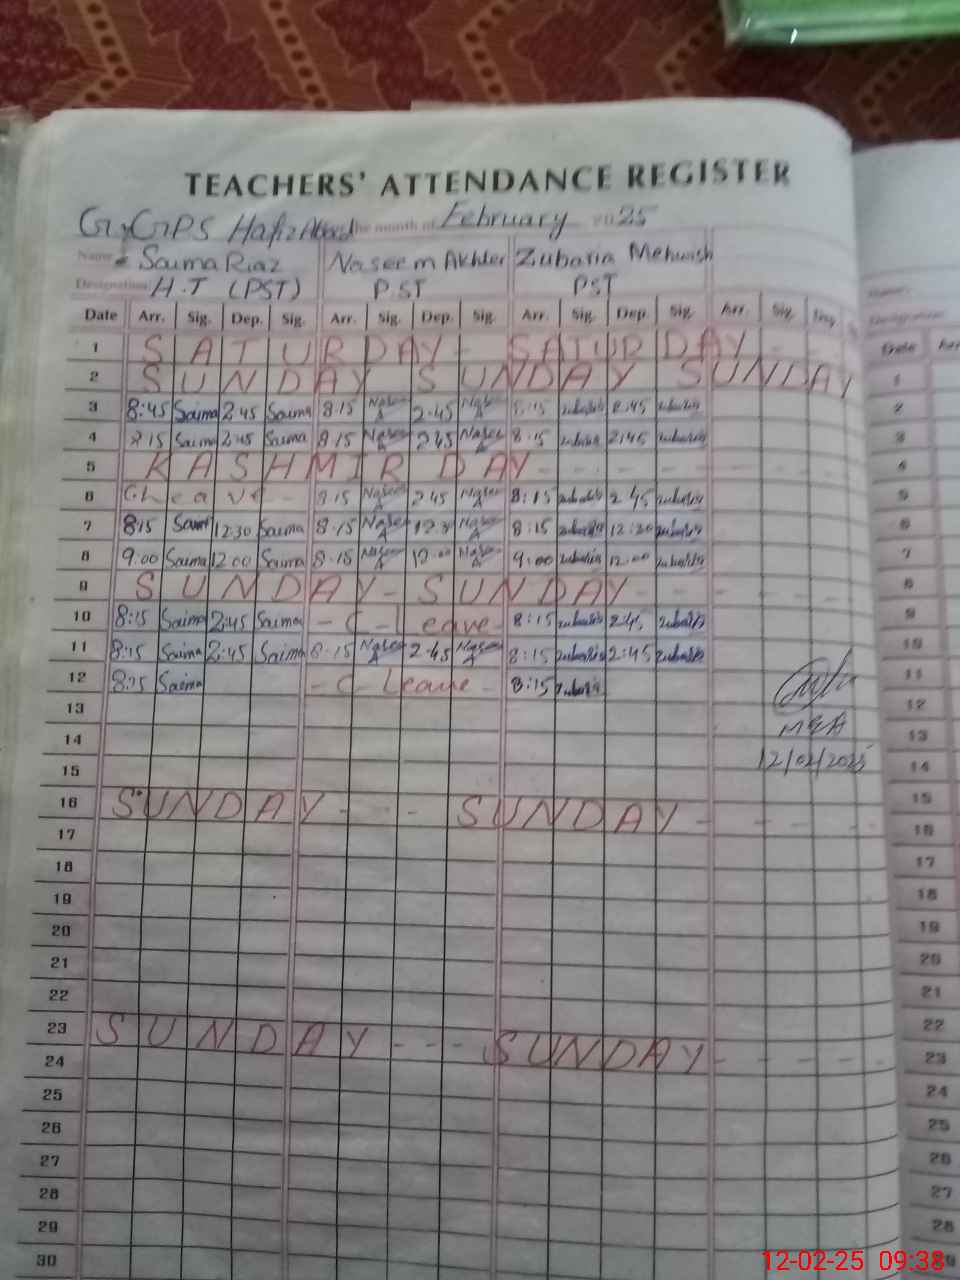 TEACHERS' ATTENDANCE REGISTER
G.GPS Hafizabad the month of February 2025
Name Saima Riaz Naseem Akhter Zubaria Mehwish
Designation H.T (PST) PST PST
Date Arr. Sig. Dep. Sig. Arr. Sig. Dep. Sig. Arr. Sig. Dep. Sig. Arr. Sig.
1 SATURDAY - SATURDAY - - -
2 SUNDAY SUNDAY SUNDAY
3 8:45 Saima 2:45 Saima 8:15 Naseem A 2:45 Naseem A 8:15 zubaria 2:45 zubaria
4 8:15 Saima 2:45 Saima 8:15 Naseem A 2:45 Naseem A 8:15 zubaria 2:45 zubaria
5 KASHMIR DAY - - - - - - -
6 C.Leave - 8:15 Naseem A 2:45 Naseem A 8:15 zubaria 2:45 zubaria
7 8:15 Saima 12:30 Saima 8:15 Naseem A 12:30 Naseem A 8:15 zubaria 12:30 zubaria
8 9:00 Saima 12:00 Saima 8:15 Naseem A 12:00 Naseem A 9:00 zubaria 12:00 zubaria
9 SUNDAY - SUNDAY - - - - -
10 8:15 Saima 2:45 Saima - C - Leave - 8:15 zubaria 2:45 zubaria
11 8:15 Saima 2:45 Saima 8:15 Naseem A 2:45 Naseem A 8:15 zubaria 2:45 zubaria
12 8:15 Saima - C - Leave - 8:15 zubaria
13
MEA
14
12/02/2025
15
16 SUNDAY - - - SUNDAY - - - -
17
18
19
20
21
22
23 SUNDAY - - - SUNDAY - - - -
24
25
26
27
28
29
30
Date
1
2
3
4
5
6
7
8
9
10
11
12
13
14
15
16
17
18
19
20
21
22
23
24
25
26
27
28
12-02-25 09:38